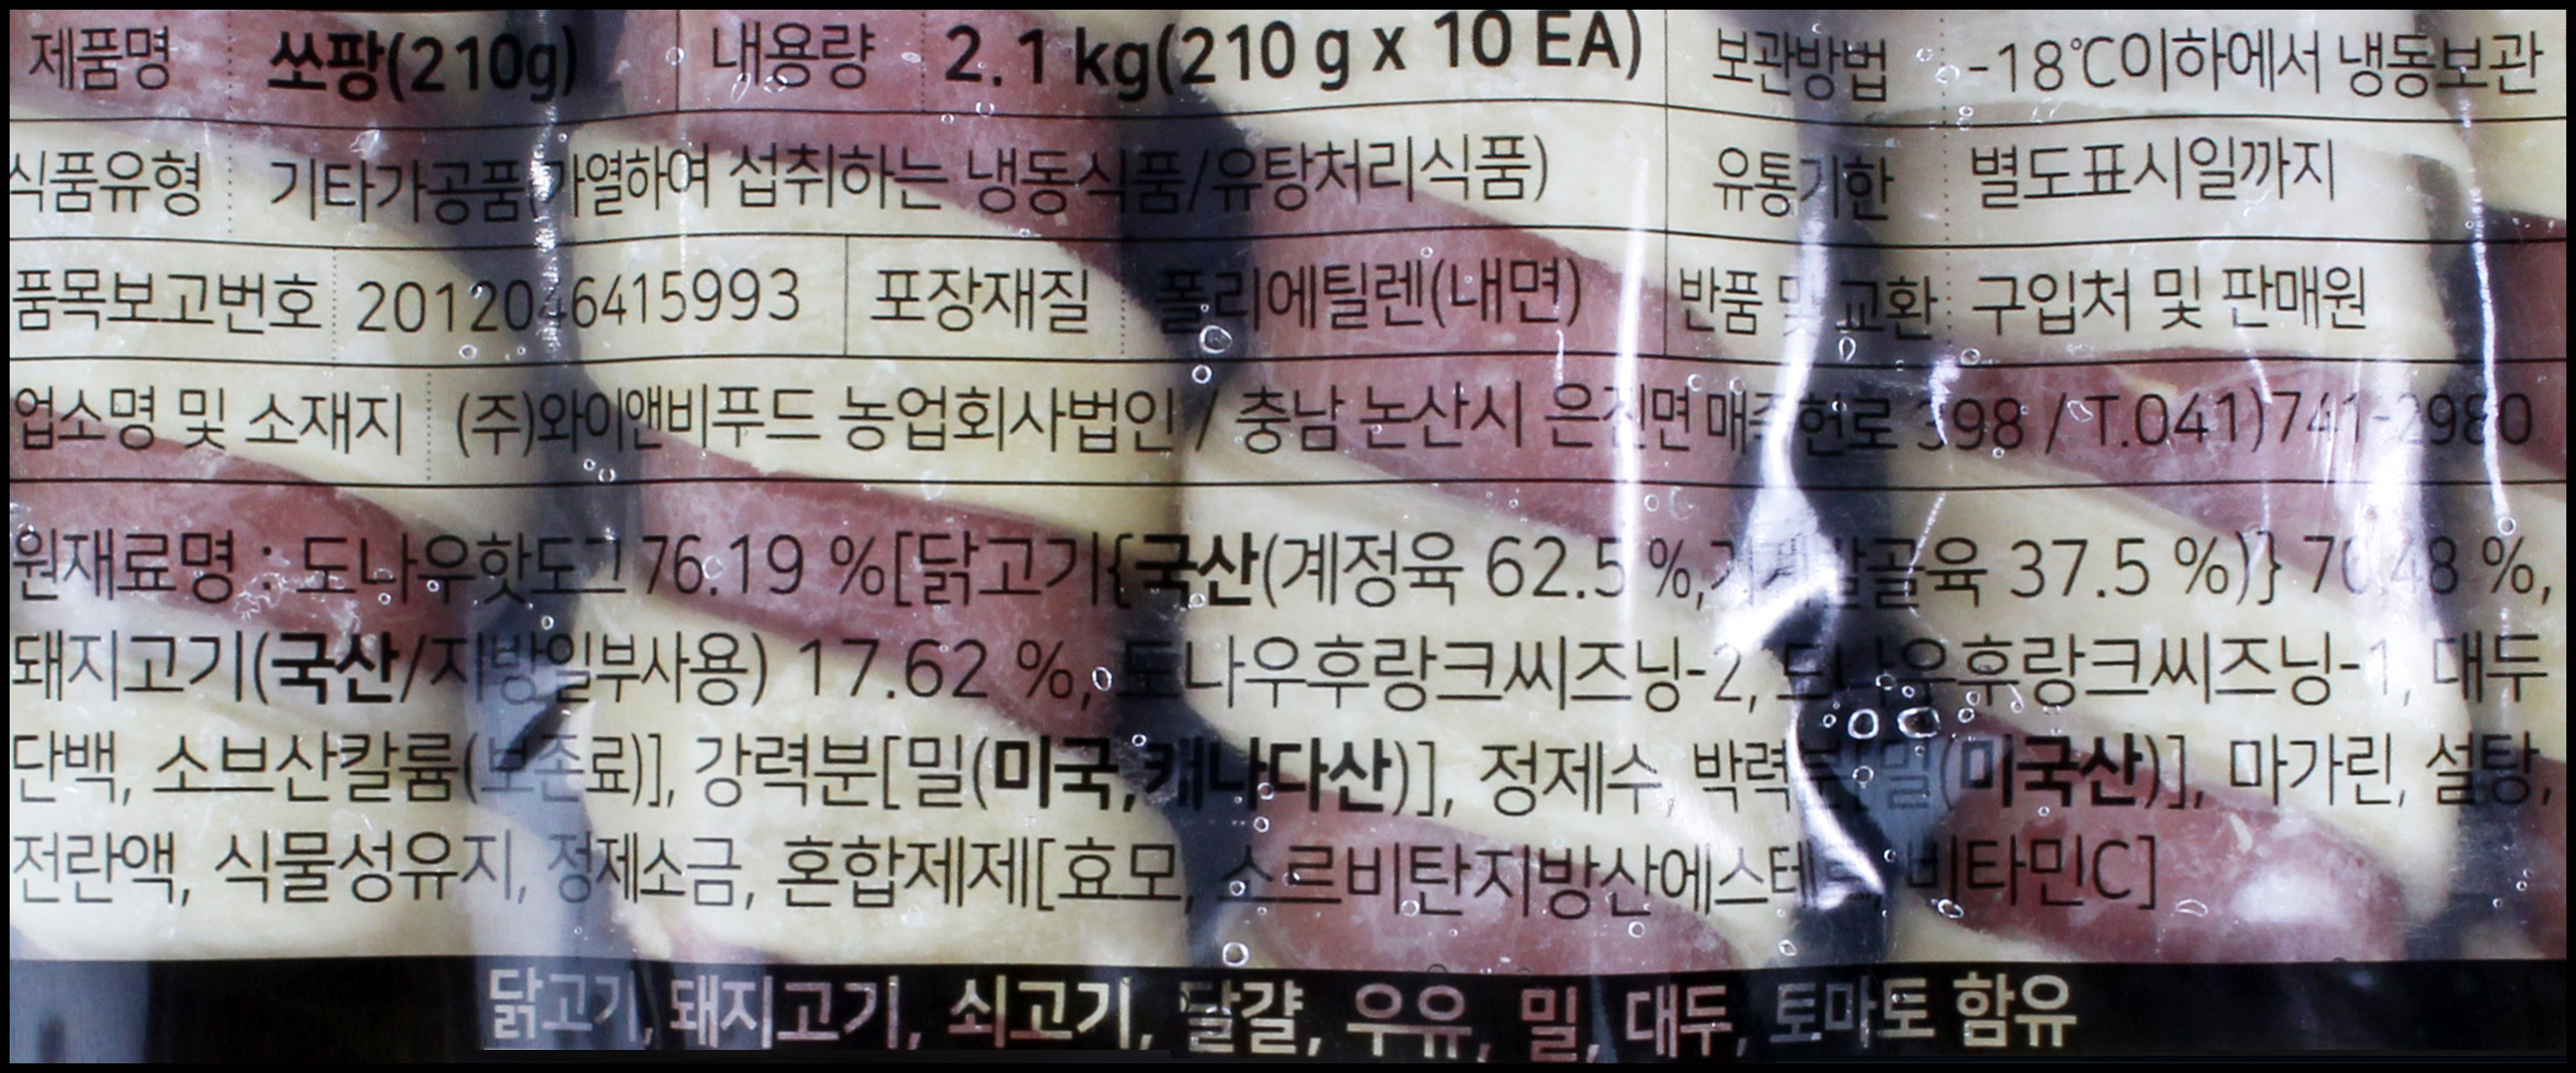 제품명 쏘팡(210g) 내용량 2.1 kg(210 g x 10 EA) 보관방법 -18℃이하에서 냉동보관
식품유형 기타가공품(가열하여 섭취하는 냉동식품/유탕처리식품) 유통기한 별도표시일까지
품목보고번호 2012046415993 포장재질 폴리에틸렌(내면) 반품 및 교환 구입처 및 판매원
업소명 및 소재지 (주)와이앤비푸드 농업회사법인 / 충남 논산시 은진면 매죽헌로 398 / T.041)741-2980
원재료명 : 도나우핫도그 76.19 %[닭고기{국산(계정육 62.5 %, 37.5 %)} 70.48 %,
돼지고기(국산/지방일부사용) 17.62 %, 도나우후랑크씨즈닝-2, 도나우후랑크씨즈닝-1, 대두
단백, 소브산칼륨(보존료)], 강력분[밀(미국,캐나다산)], 정제수, 박력분[밀(미국산)], 마가린, 설탕,
전란액, 식물성유지, 정제소금, 혼합제제[효모, 소르비탄지방산에스테르, 비타민C]
닭고기, 돼지고기, 쇠고기, 달걀, 우유, 밀, 대두, 토마토 함유